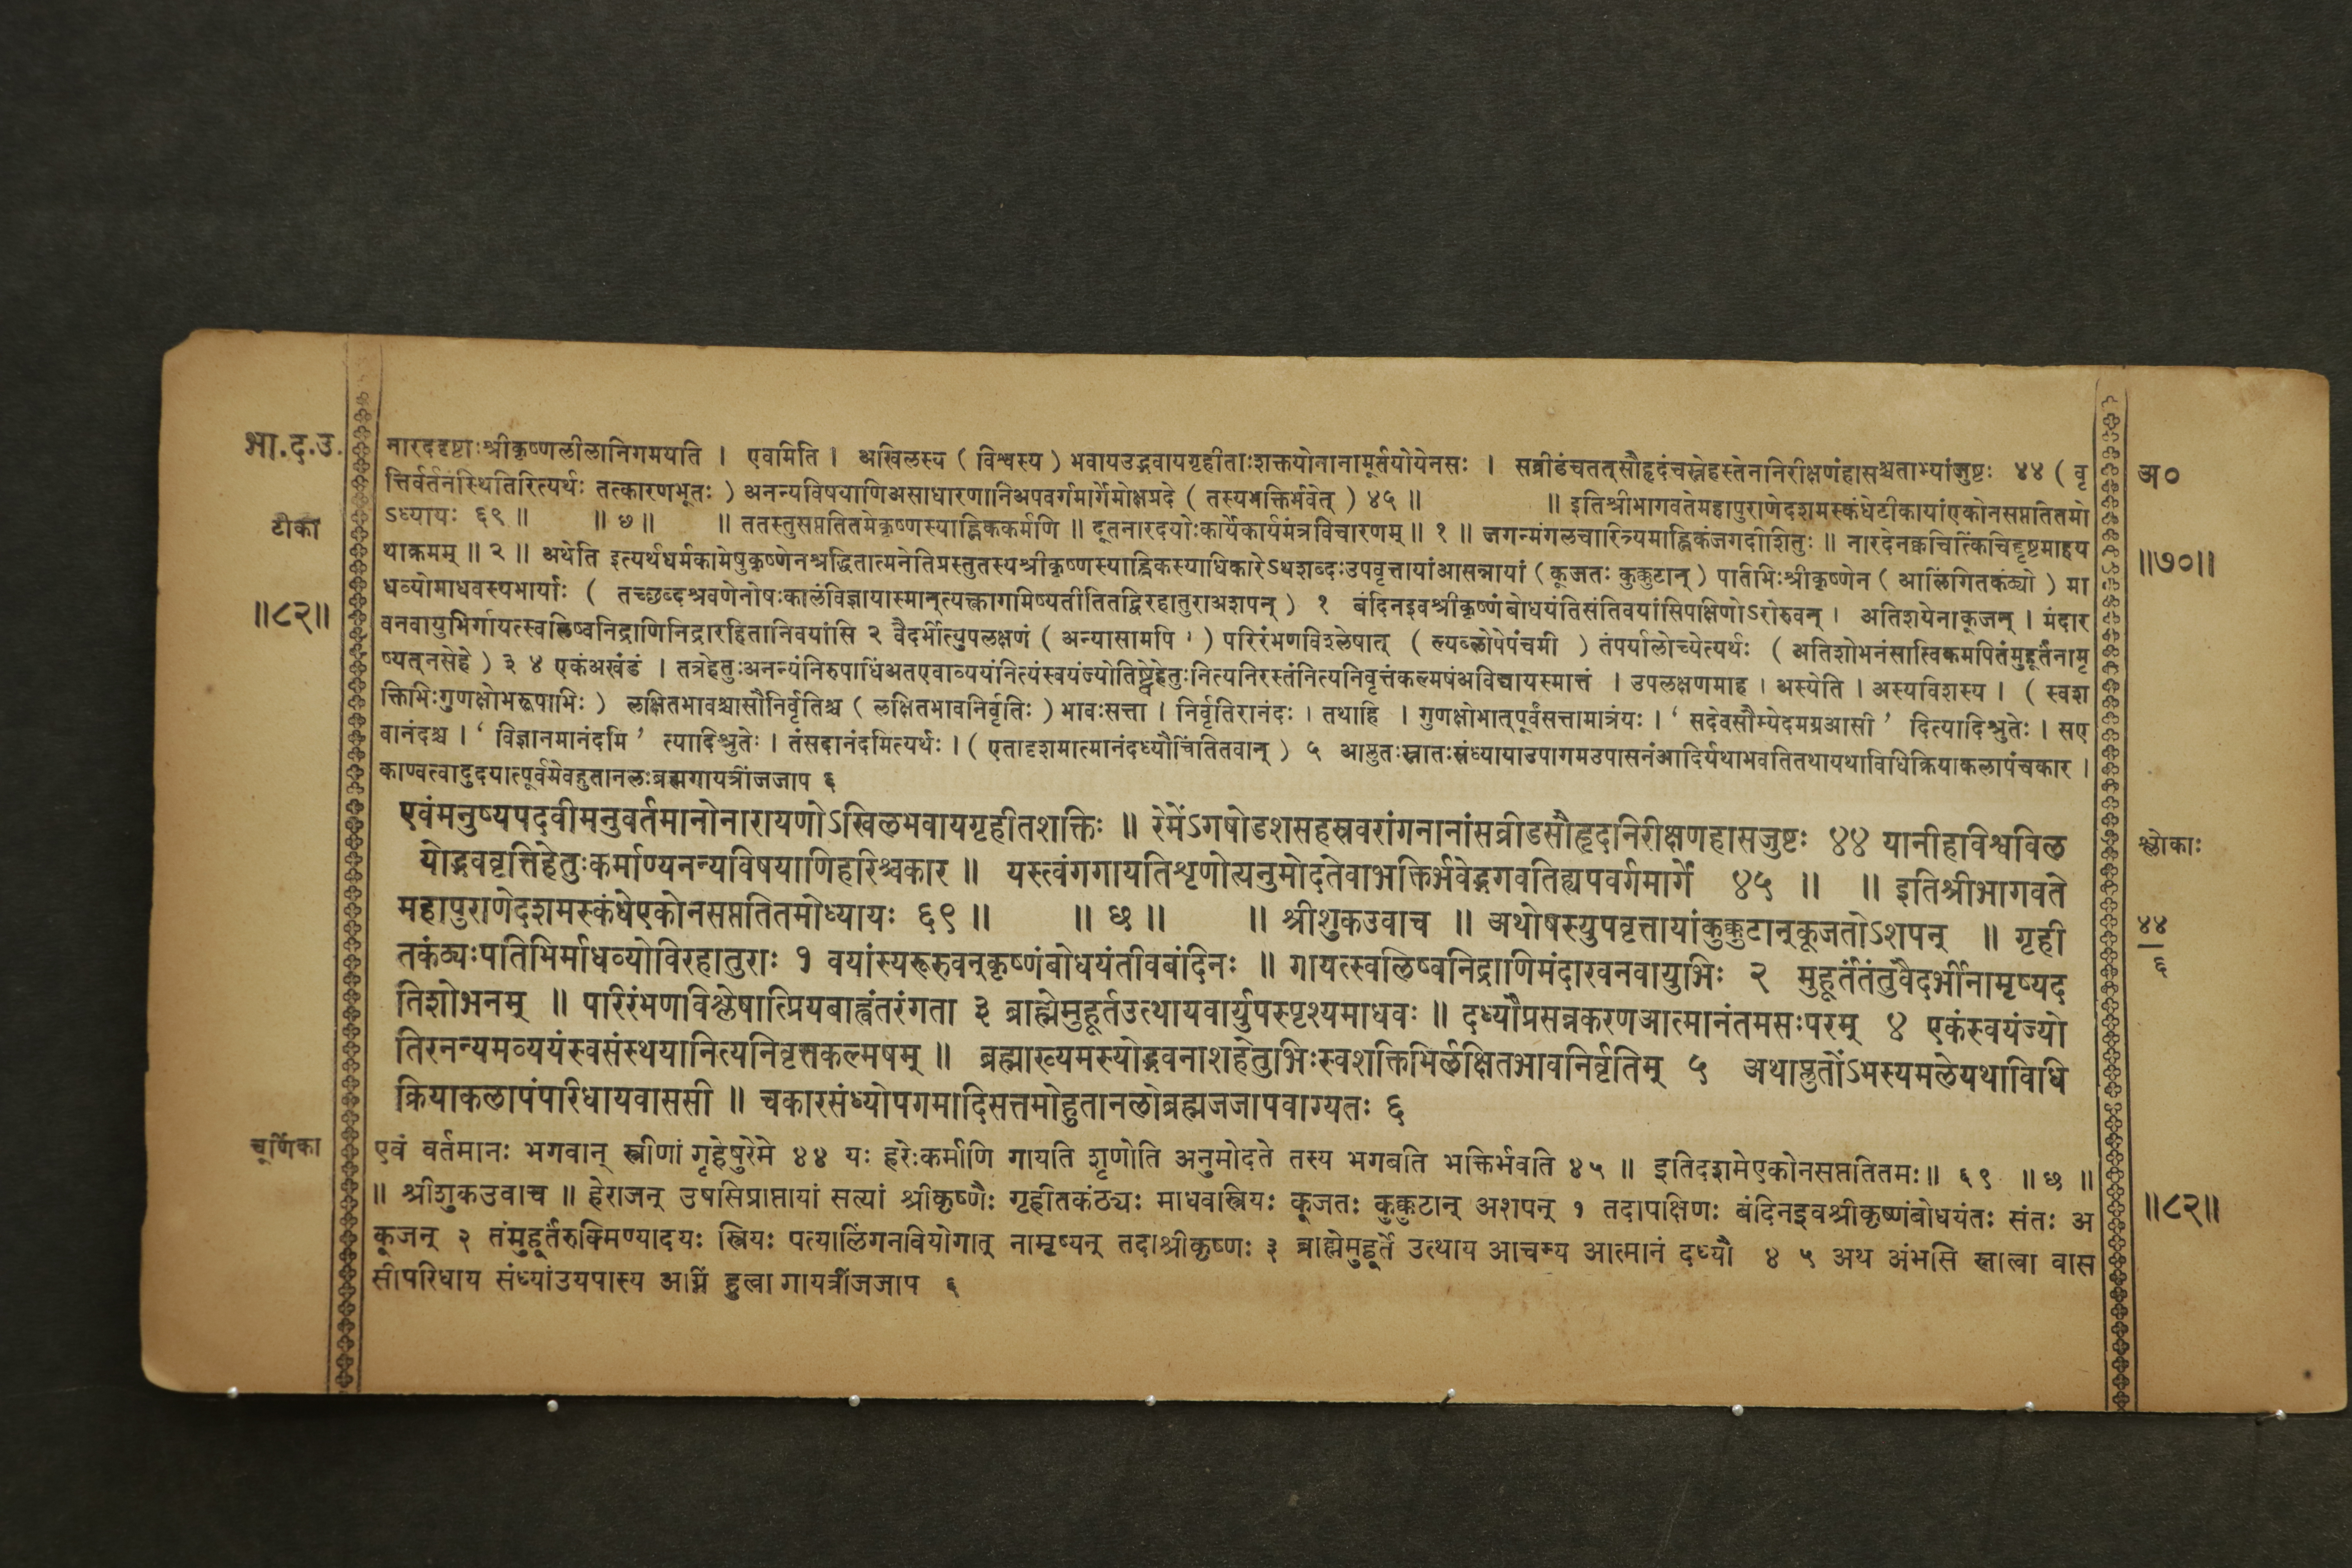 भा.द.उ.
टीका
॥८२॥
नारददृष्टाःश्रीकृष्णलीलानिगमयति । एवमिति । अखिलस्य ( विश्वस्य ) भवायउद्भवायगृहीताःशक्तयोनानामूर्तयोयेनसः । सव्रीडंचतत्सौहृदंचस्नेहस्तेननिरीक्षणंहासश्चताभ्यांजुष्टः ४४ ( वृ
त्तिर्वर्तनंस्थितिरित्यर्थः तत्कारणभूतः ) अनन्यविषयाणिअसाधारणानिअपवर्गमार्गेमोक्षप्रदे ( तस्यभक्तिर्भवेत् ) ४५ ॥ ॥ इतिश्रीभागवतेमहापुराणेदशमस्कंधेटीकायांएकोनसप्ततितमो
ऽध्यायः ६९ ॥ ॥ छ ॥ ॥ ततस्तुसप्ततितमेकृष्णस्याह्निककर्माणि ॥ दूतनारदयोःकार्येकार्यमंत्रविचारणम् ॥ १ ॥ जगन्मंगलचारित्र्यमाह्निकंजगदीशितुः ॥ नारदेनक्वचित्किंचिद्दृष्टमाहय
थाक्रमम् ॥ २ ॥ अथेति इत्यर्थधर्मकामेषुकृष्णेनश्रद्धितात्मनेतिप्रस्तुतस्यश्रीकृष्णस्याह्निकस्याधिकारेऽथशब्दःउपवृत्तायांआसन्नायां ( कूजतः कुक्कुटान् ) पतिभिःश्रीकृष्णेन ( आलिंगितकंठ्यो ) मा
धव्योमाधवस्यभार्याः ( तच्छब्दश्रवणेनोषःकालंविज्ञायास्मान्त्यक्त्वागमिष्यतीतितद्विरहातुराअशपन् ) १ बंदिनइवश्रीकृष्णंबोधयंतिसंतिवयांसिपक्षिणोऽरोरुवन् । अतिशयेनाकूजन् । मंदार
वनवायुभिर्गायत्स्वलिष्वनिद्राणिनिद्रारहितानिवयांसि २ वैदर्भीत्युपलक्षणं ( अन्यासामपि । ) परिरंभणविश्लेषात् ( ल्यब्लोपेपंचमी ) तंपर्यालोच्येत्यर्थः ( अतिशोभनंसात्विकमपितंमुहूर्तंनामृ
ष्यत्नसेहे ) ३ ४ एकंअखंडं । तत्रहेतुःअनन्यंनिरुपाधिंअतएवाव्ययंनित्यंस्वयंज्योतिष्ट्वेहेतुःनित्यनिरस्तंनित्यनिवृत्तंकल्मषंअविद्यायस्मात्तं । उपलक्षणमाह । अस्येति । अस्यविशस्य । ( स्वश
क्तिभिःगुणक्षोभरूपाभिः ) लक्षितभावश्चासौनिर्वृतिश्च ( लक्षितभावनिर्वृतिः ) भावःसत्ता । निर्वृतिरानंदः । तथाहि । गुणक्षोभात्पूर्वंसत्तामात्रंयः । ‘ सदेवसौम्येदमग्रआसी ’ दित्यादिश्रुतेः । सए
वानंदश्च । ‘ विज्ञानमानंदमि ’ त्यादिश्रुतेः । तंसदानंदमित्यर्थः । ( एतादृशमात्मानंदध्यौचिंतितवान् ) ५ आप्लुतःस्नातःसंध्यायाउपागमउपासनंआदिर्यथाभवतितथायथाविधिक्रियाकलापंचकार ।
काण्वत्वादुदयात्पूर्वमेवहुतानलःब्रह्मगायत्रींजजाप ६
एवंमनुष्यपदवीमनुवर्तमानोनारायणोऽखिलभवायगृहीतशक्तिः ॥ रेमेंऽगषोडशसहस्रवरांगनानांसव्रीडसौहृदनिरीक्षणहासजुष्टः ४४ यानीहविश्वविल
योद्भववृत्तिहेतुःकर्माण्यनन्यविषयाणिहरिश्चकार ॥ यस्त्वंगगायतिशृणोत्यनुमोदतेवाभक्तिर्भवेद्भगवतिह्यपवर्गमार्गे ४५ ॥ ॥ इतिश्रीभागवते
महापुराणेदशमस्कंधेएकोनसप्ततितमोध्यायः ६९ ॥ ॥ छ ॥ ॥ श्रीशुकउवाच ॥ अथोषस्युपवृत्तायांकुक्कुटान्कूजतोऽशपन् ॥ गृही
तकंठ्यःपतिभिर्माधव्योविरहातुराः १ वयांस्यरूरुवन्कृष्णंबोधयंतीवबंदिनः ॥ गायत्स्वलिष्वनिद्राणिमंदारवनवायुभिः २ मुहूर्तंतंतुवैदर्भीनामृष्यद
तिशोभनम् ॥ परिरंभणविश्लेषात्प्रियबाह्वंतरंगता ३ ब्राह्मेमुहूर्तउत्थायवार्युपस्पृश्यमाधवः ॥ दध्यौप्रसन्नकरणआत्मानंतमसःपरम् ४ एकंस्वयंज्यो
तिरनन्यमव्ययंस्वसंस्थयानित्यनिवृत्तकल्मषम् ॥ ब्रह्माख्यमस्योद्भवनाशहेतुभिःस्वशक्तिभिर्लक्षितभावनिर्वृतिम् ५ अथाप्लुतोंऽभस्यमलेयथाविधि
क्रियाकलापंपरिधायवाससी ॥ चकारसंध्योपगमादिसत्तमोहुतानलोब्रह्मजजापवाग्यतः ६
चूर्णिका
एवं वर्तमानः भगवान् स्त्रीणां गृहेषुरेमे ४४ यः हरेःकर्माणि गायति शृणोति अनुमोदते तस्य भगवति भक्तिर्भवति ४५ ॥ इतिदशमेएकोनसप्ततितमः॥ ६९ ॥ छ ॥
॥ श्रीशुकउवाच ॥ हेराजन् उषसिप्राप्तायां सत्यां श्रीकृष्णैः गृहीतकंठ्यः माधवस्त्रियः कूजतः कुक्कुटान् अशपन् १ तदापक्षिणः बंदिनइवश्रीकृष्णंबोधयंतः संतः अ
कूजन् २ तंमुहूर्तंरुक्मिण्यादयः स्त्रियः पत्यालिंगनवियोगात् नामृष्यन् तदाश्रीकृष्णः ३ ब्राह्मेमुहूर्ते उत्थाय आचम्य आत्मानं दध्यौ ४ ५ अथ अंभसि स्नात्वा वास
सीपरिधाय संध्यांउयपास्य अग्निं हुत्वा गायत्रींजजाप ६
अ०
॥७०॥
श्लोकाः
४४
६
॥८२॥